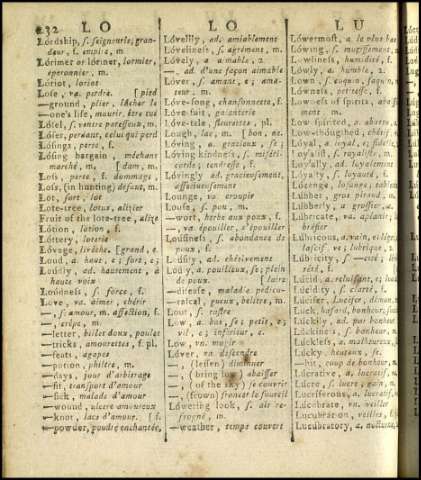 232 L O L O L U
Lórdship, s. seigneurie; gran-
deur, f. empire, m
Lórimer or lóriner, lormier,
éperonnier, m.
Lóriot, loriot
Lose, va. perdre. [pied
—ground, plier, lâcher le
—one's life, mourir, être tué
Lósel, s. ventre paresseux, m.
Lóser, perdant, celui qui perd
Lósings, perte, f.
Lósing bargain, méchant
marché, m. [dom, m.
Loss, perte, f. dommage,
Loss, (in hunting) défaut, m.
Lot, sort, lot
Lote-tree, lotus, alizier
Fruit of the lote-tree, alize
Lótion, lotion, f.
Lóttery, loterie
Lóvage, livêche, [grand, e.
Loud, a. haut, e; fort, e;
Loúdly, ad. hautement, à
haute voix
Loúdness, s. force, f.
Love, va. aimer, chérir
—, s. amour, m. affection, f.
—, crêpe, m.
—letter, billet doux, poulet
—tricks, amourettes, f. pl.
—feasts, agapes
—potion, philtre, m.
—days, jour d'arbitrage
—fit, transport d'amour
—sick, malade d'amour
—wound, ulcere amoureux
—knot, lacs d'amour [f.
—powder, poudre enchantée,
Lóvelily, ad. aimablement
Lóveliness, s. agrément, m.
Lóvely, a. aimable, 2.
—, ad. d'une façon aimable
Lóver, s. amant, e; ama-
teur, m.
Lóve-song, chansonnette, f.
Lóve-suit, galanterie
Lóve-tale, fleurettes, pl.
Lough, lac, m. [bon, ne.
Lóving, a. gracieux, se;
Lóving kindness, s. miséri-
corde; tendresse, f.
Lóvingly ad. gracieusement,
affectueusement
Lounge, va. croupir
Louse, s. pou, m.
—wort, herbe aux poux, f.
—, va. épouiller, s'épouiller
Loúsiness, s. abondance de
poux, f.
Loúsily, ad. chétivement
Loúsy, a. pouilleux, se; plein
de poux. [laire
—disease, maladie pédicu-
—rascal, gueux, belitre, m.
Lout, s. rustre
Low, a. bas, se; petit, e;
vil, e; inférieur, e.
Low, vn. mugir
Lówer, va. descendre
—, (lessen) diminuer
—, (bring low) abaisser
—, (of the sky) se couvrir
—, (frown) froncer le sourcil
Lówering look, s. air re-
frogné, m.
—weather, temps couvert
Lówermost, a. le plus bas
Lówing, s. mugissement, m.
Lówliness, humidité, f.
Lówly, a. humble, 2.
Lown, s. coquin, faquin,
Lówness, petitesse, f.
Lowness of spirits,
ment, m.
Low spirited, a.
Low-thoughted,
Lóyal, a. loyal, e; fidele,
Lóyalist, s. royaliste, m.
Lóyally, ad.
Lóyalty, s. loyauté, f.
Lózenge, losange,
Lúbber, gros
Lúbberly, a.
Lúbricate, va.
brifier
Lúbricous, a. vain, e; lége
lascif, ve; lubrique,
Lubrícity, s.
sité, f.
Lúcid, a. reluisant, e;
Lucídity, s. clarté, f.
Lúcifer, Lucifer,
Luck, hasard, bonheur,
Lúckily, ad. par bonheur
Lúckiness, s. bonheur, m.
Lúckless, a. malheureux,
Lúcky, heureux, se.
—hit, coup de bonheur,
Lúcrative, a. lucratif,
Lúcre, s. lucre; gain,
Lucríferous, a. lucratif,
Lúcubrate, vn. veiller
Lucubrátion, veilles,
Lucubratory, a.